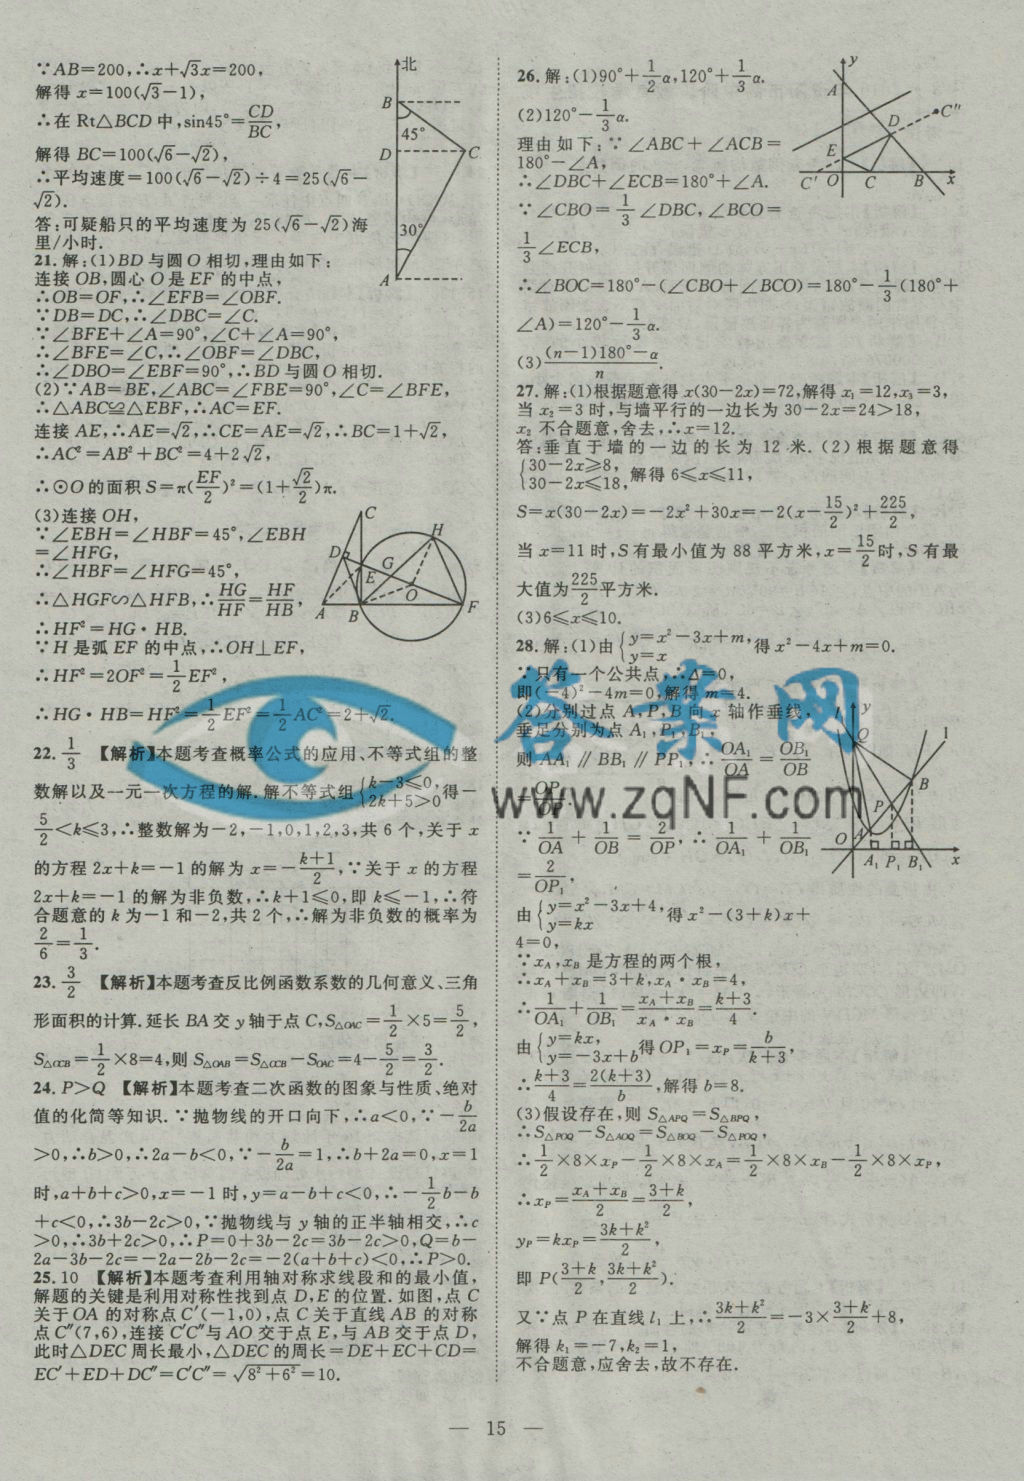 ∵AB=200,∴x+√3x=200,
解得 x=100(√3-1),
∴在 Rt△BCD 中,sin45°=CD/BC,
解得 BC=100(√6-√2),
∴平均速度=100(√6-√2)÷4=25(√6-
√2).
答:可疑船只的平均速度为 25(√6-√2)海
里/小时.
北
B
45°
D
C
30°
A
21.解:(1)BD 与圆 O 相切,理由如下:
连接 OB,圆心 O 是 EF 的中点,
∴OB=OF,∴∠EFB=∠OBF.
∵DB=DC,∴∠DBC=∠C.
∵∠BFE+∠A=90°,∠C+∠A=90°,
∴∠BFE=∠C,∴∠OBF=∠DBC,
∴∠DBO=∠EBF=90°,∴BD与圆O相切.
(2)∵AB=BE,∠ABC=∠FBE=90°,∠C=∠BFE,
∴△ABC≌△EBF,∴AC=EF.
连接 AE,∴AE=√2,∴CE=AE=√2,∴BC=1+√2,
∴AC²=AB²+BC²=4+2√2,
∴⊙O的面积 S=π(EF/2)²=(1+√2/2)π.
(3)连接 OH,
∵∠EBH=∠HBF=45°,∠EBH
=∠HFG,
∴∠HBF=∠HFG=45°,
∴△HGF∽△HFB,∴HG/HF=HF/HB,
∴HF²=HG·HB.
∵H 是弧 EF 的中点,∴OH⊥EF,
∴HF²=2OF²=1/2EF²,
∴HG·HB=HF²=1/2EF²=1/2AC²=2+√2.
C
H
D
G
E
O
A B F
22.1/3 【解析】本题考查概率公式的应用、不等式组的整
数解以及一元一次方程的解.解不等式组{k-3≤0, 2k+5>0得-
5/2<k≤3,∴整数解为-2,-1,0,1,2,3,共 6 个,关于 x
的方程 2x+k=-1 的解为 x=-(k+1)/2,∵关于 x 的方程
2x+k=-1 的解为非负数,∴k+1≤0,即 k≤-1,∴符
合题意的 k 为-1 和-2,共 2 个,∴解为非负数的概率为
2/6=1/3.
23.3/2 【解析】本题考查反比例函数系数的几何意义、三角
形面积的计算.延长 BA交 y轴于点 C,S△OAC=1/2×5=5/2,
S△OCB=1/2×8=4,则 S△OAB=S△OCB-SOAC=4-5/2=3/2.
24.P>Q 【解析】本题考查二次函数的图象与性质、绝对
值的化简等知识.∵抛物线的开口向下,∴a<0,∵-b/2a
>0,∴b>0,∴2a-b<0,∵-b/2a=1,∴b+2a=0,x=1
时,a+b+c>0,x=-1 时,y=a-b+c<0,∴-1/2b-b
+c<0,∴3b-2c>0,∵抛物线与 y轴的正半轴相交,∴c
>0,∴3b+2c>0,∴P=0+3b-2c=3b-2c>0,Q=b-
2a-3b-2c=-2a-2b-2c=-2(a+b+c)<0,∴P>0.
25.10 【解析】本题考查利用轴对称求线段和的最小值,
解题的关键是利用对称性找到点 D,E的位置.如图,点 C
关于 OA 的对称点 C′(-1,0),点 C 关于直线 AB 的对称
点 C″(7,6),连接 C′C″与 AO 交于点 E,与 AB 交于点 D,
此时△DEC 周长最小,△DEC 的周长=DE+EC+CD=
EC′+ED+DC″=C′C″=√8²+6²=10.
26.解:(1)90°+1/2α,120°+1/3α.
(2)120°-1/3α.
理由如下:∵∠ABC+∠ACB=
180°-∠A,
∴∠DBC+∠ECB=180°+∠A.
∵∠CBO=1/3∠DBC,∠BCO=
1/3∠ECB,
∴∠BOC=180°-(∠CBO+∠BCO)=180°-1/3(180°+
∠A)=120°-1/3α.
(3)(n-1)180°-α/n.
y
A
C″
D
E
C′ O C B x
27.解:(1)根据题意得 x(30-2x)=72,解得 x₁=12,x₃=3,
当 x₂=3 时,与墙平行的一边长为 30-2x=24>18,
x₂ 不合题意,舍去,∴x=12.
答:垂直于墙的一边的长为 12 米.(2)根据题意得
{30-2x≥8, 30-2x≤18,解得 6≤x≤11,
S=x(30-2x)=-2x²+30x=-2(x-15/2)²+225/2,
当 x=11 时,S有最小值为 88 平方米,x=15/2时,S有最
大值为225/2平方米.
(3)6≤x≤10.
28.解:(1)由{y=x²-3x+m, y=x得 x²-4x+m=0.
∵只有一个公共点,∴Δ=0,
即(-4)²-4m=0,解得 m=4.
(2)分别过点 A,P,B 向 x 轴作垂线,
垂足分别为点 A₁,P₁,B₁,
则 AA₁∥BB₁∥PP₁,∴OA₁/OA=OB₁/OB
∵1/OA+1/OB=2/OP,∴1/OA₁+1/OB₁
=2/OP₁,
由{y=x²-3x+4, y=kx得 x²-(3+k)x+
4=0,
∵xA,xB 是方程的两个根,
∴xA+xB=3+k,xA·xB=4,
∴1/OA₁+1/OB₁=(xA+xB)/(xA·xB)=(k+3)/4.
由{y=kx, y=-3x+b得 OP₁=xP=b/(k+3),
∴(k+3)/4=2(k+3)/b,解得 b=8.
(3)假设存在,则 S△APQ=S△BPQ,
∴S△POQ-S△AOQ=S△BOQ-S△POQ,
∴1/2×8×xP-1/2×8×xA=1/2×8×xB-1/2×8×xP,
∴xP=(xA+xB)/2=(3+k)/2,
yP=kxP=(3k+k²)/2,
即 P((3+k)/2,(3k+k²)/2).
又∵点 P 在直线 l₁ 上,∴(3k+k²)/2=-3×(3+k)/2+8,
解得 k₁=-7,k₂=1,
不合题意,应舍去,故不存在.
y
Q
l
B
P
A
O A₁ P₁ B₁ x
答案网
www.zqNF.com
— 15 —